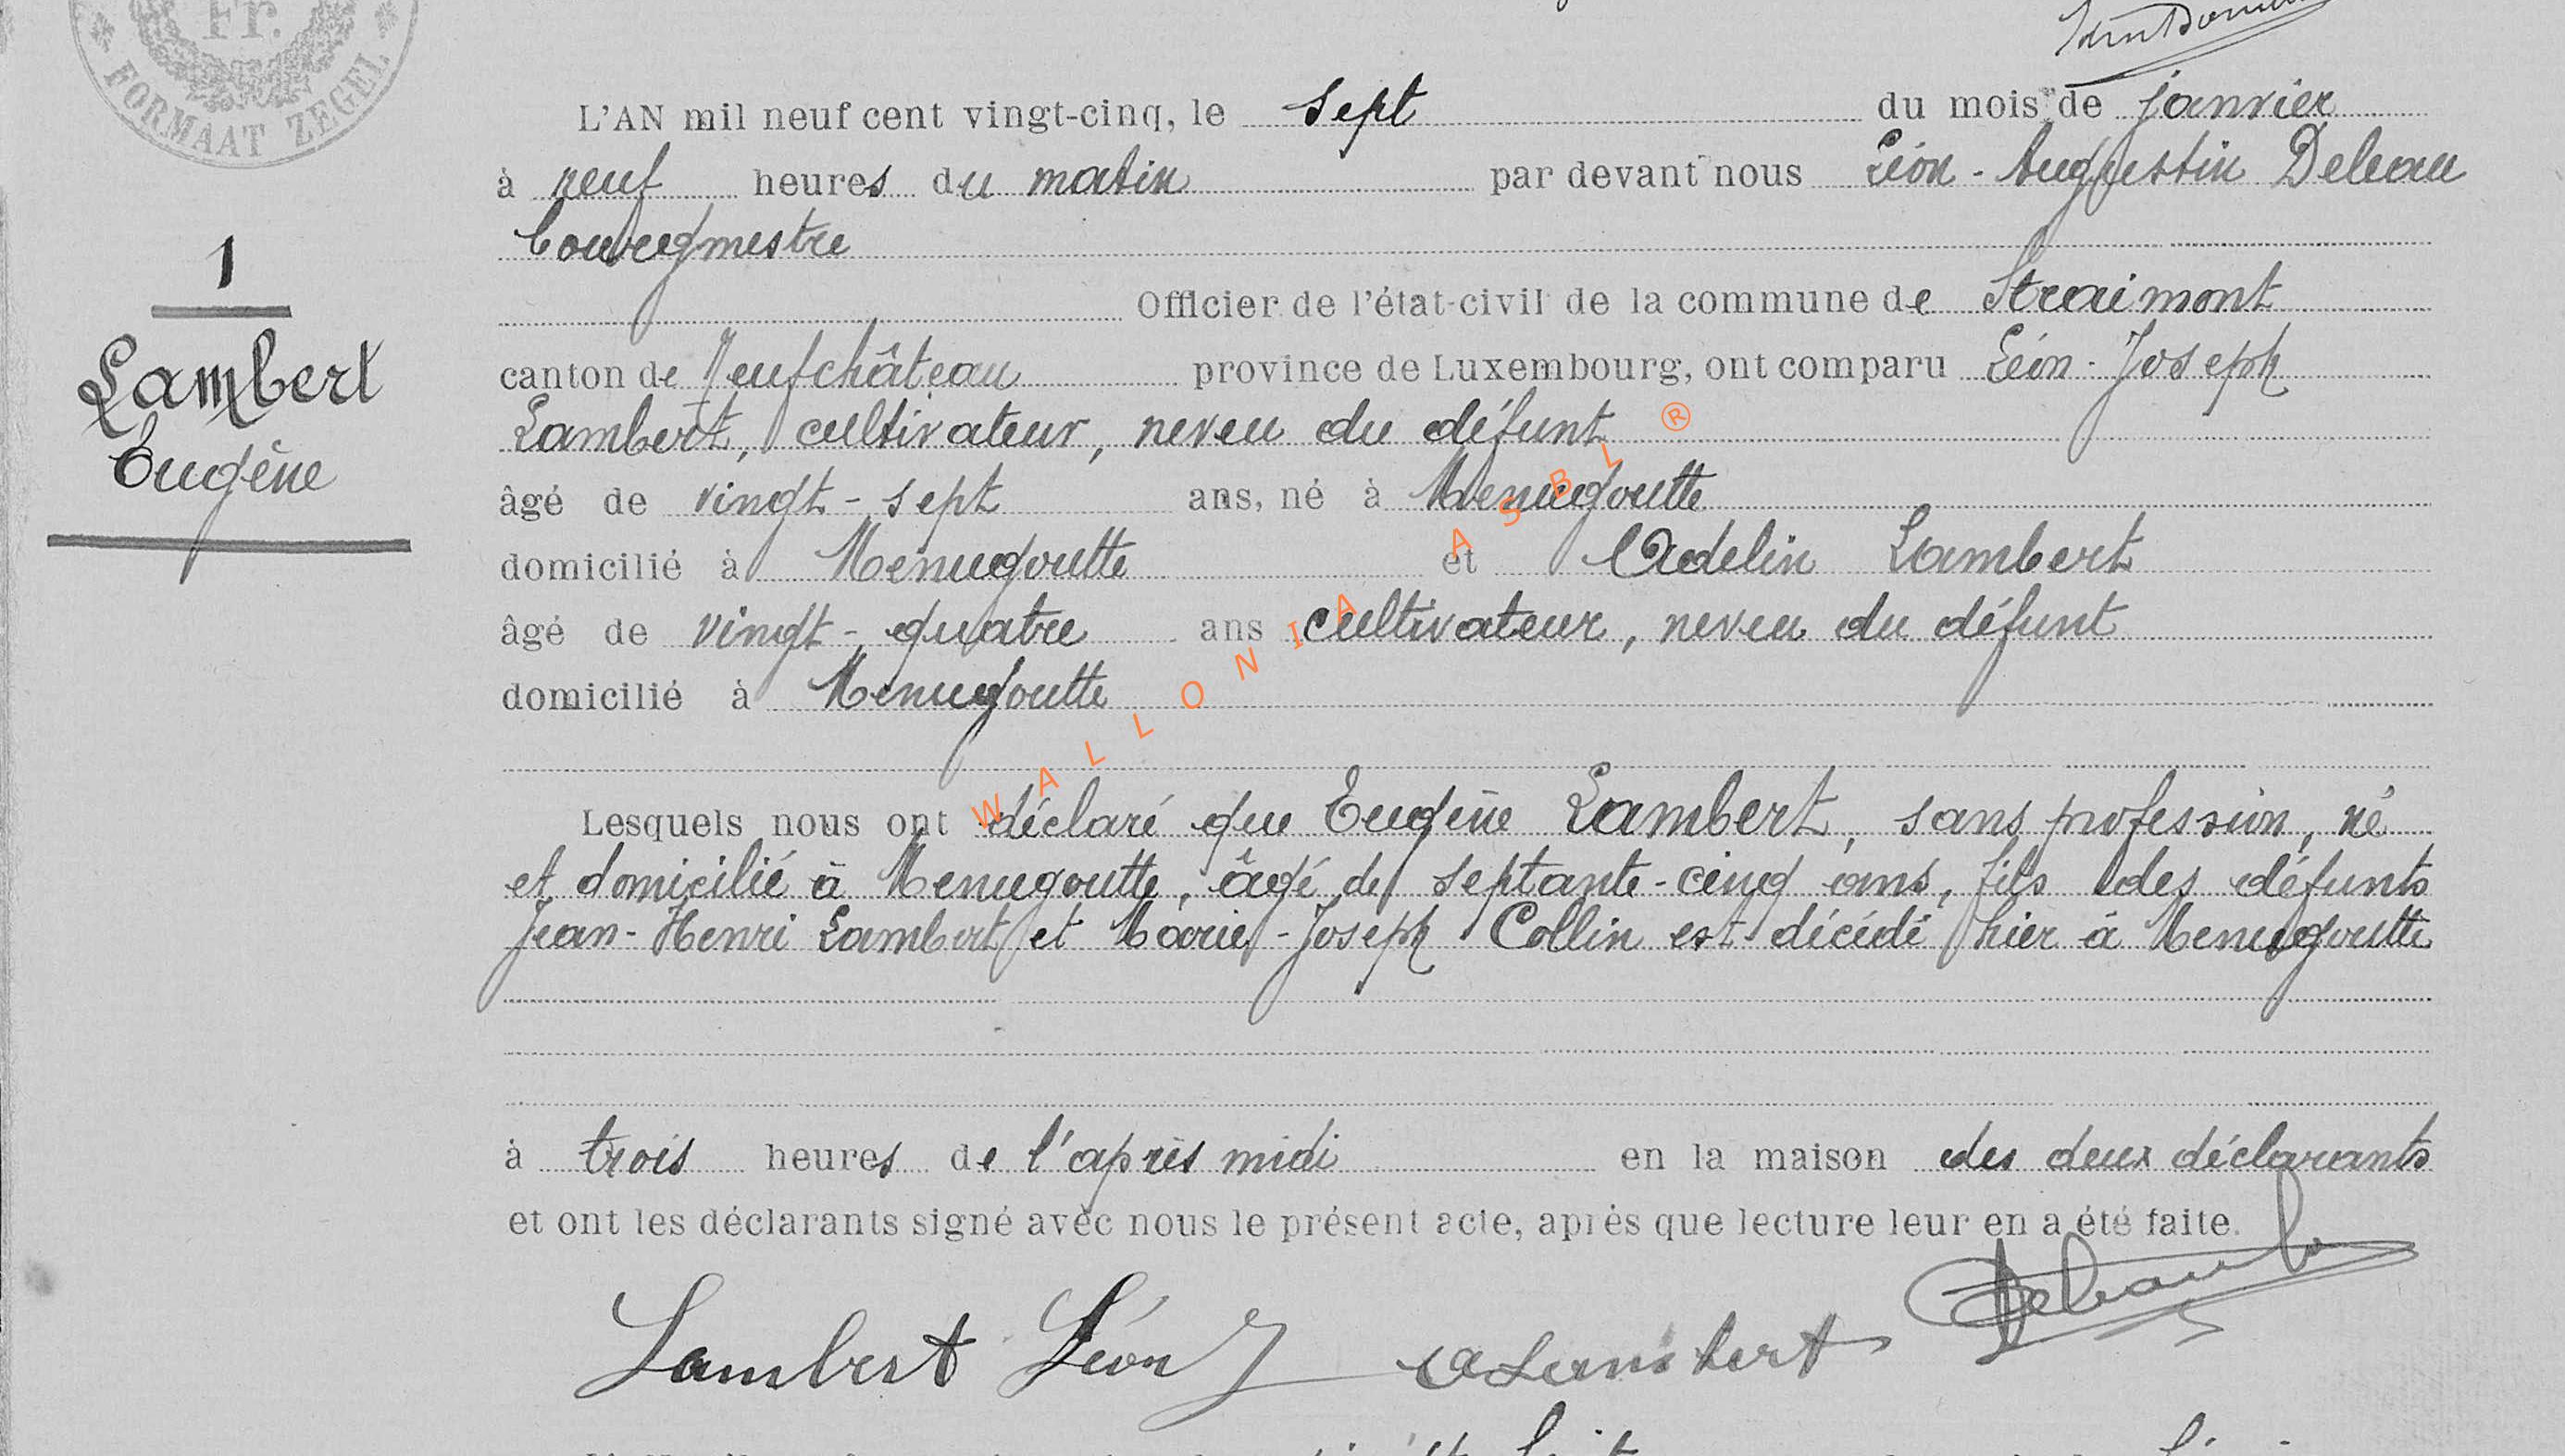 Fr.
FORMAAT ZEGEL
L'AN mil neuf cent vingt-cinq, le sept du mois de janvier
à neuf heures du matin par devant nous Léon-Augustin Deleau
bourgmestre
Officier de l'état-civil de la commune de Straimont
canton de Neufchâteau province de Luxembourg, ont comparu Léon-Joseph
Lambert, cultivateur, neveu du défunt
âgé de vingt-sept ans, né à Menugoutte
domicilié à Menugoutte et Adelin Lambert
âgé de vingt-quatre ans cultivateur, neveu du défunt
domicilié à Menugoutte
Lesquels nous ont déclaré que Eugène Lambert, sans profession, né
et domicilié à Menugoutte, âgé de septante-cinq ans, fils des défunts
Jean-Henri Lambert et Marie-Joseph Collin est décédé hier à Menugoutte
à trois heures de l'après midi en la maison des deux déclarants
et ont les déclarants signé avec nous le présent acte, après que lecture leur en a été faite.
Lambert Léon A Lambert
1
Lambert
Eugène
WALLONIA ASBL ®